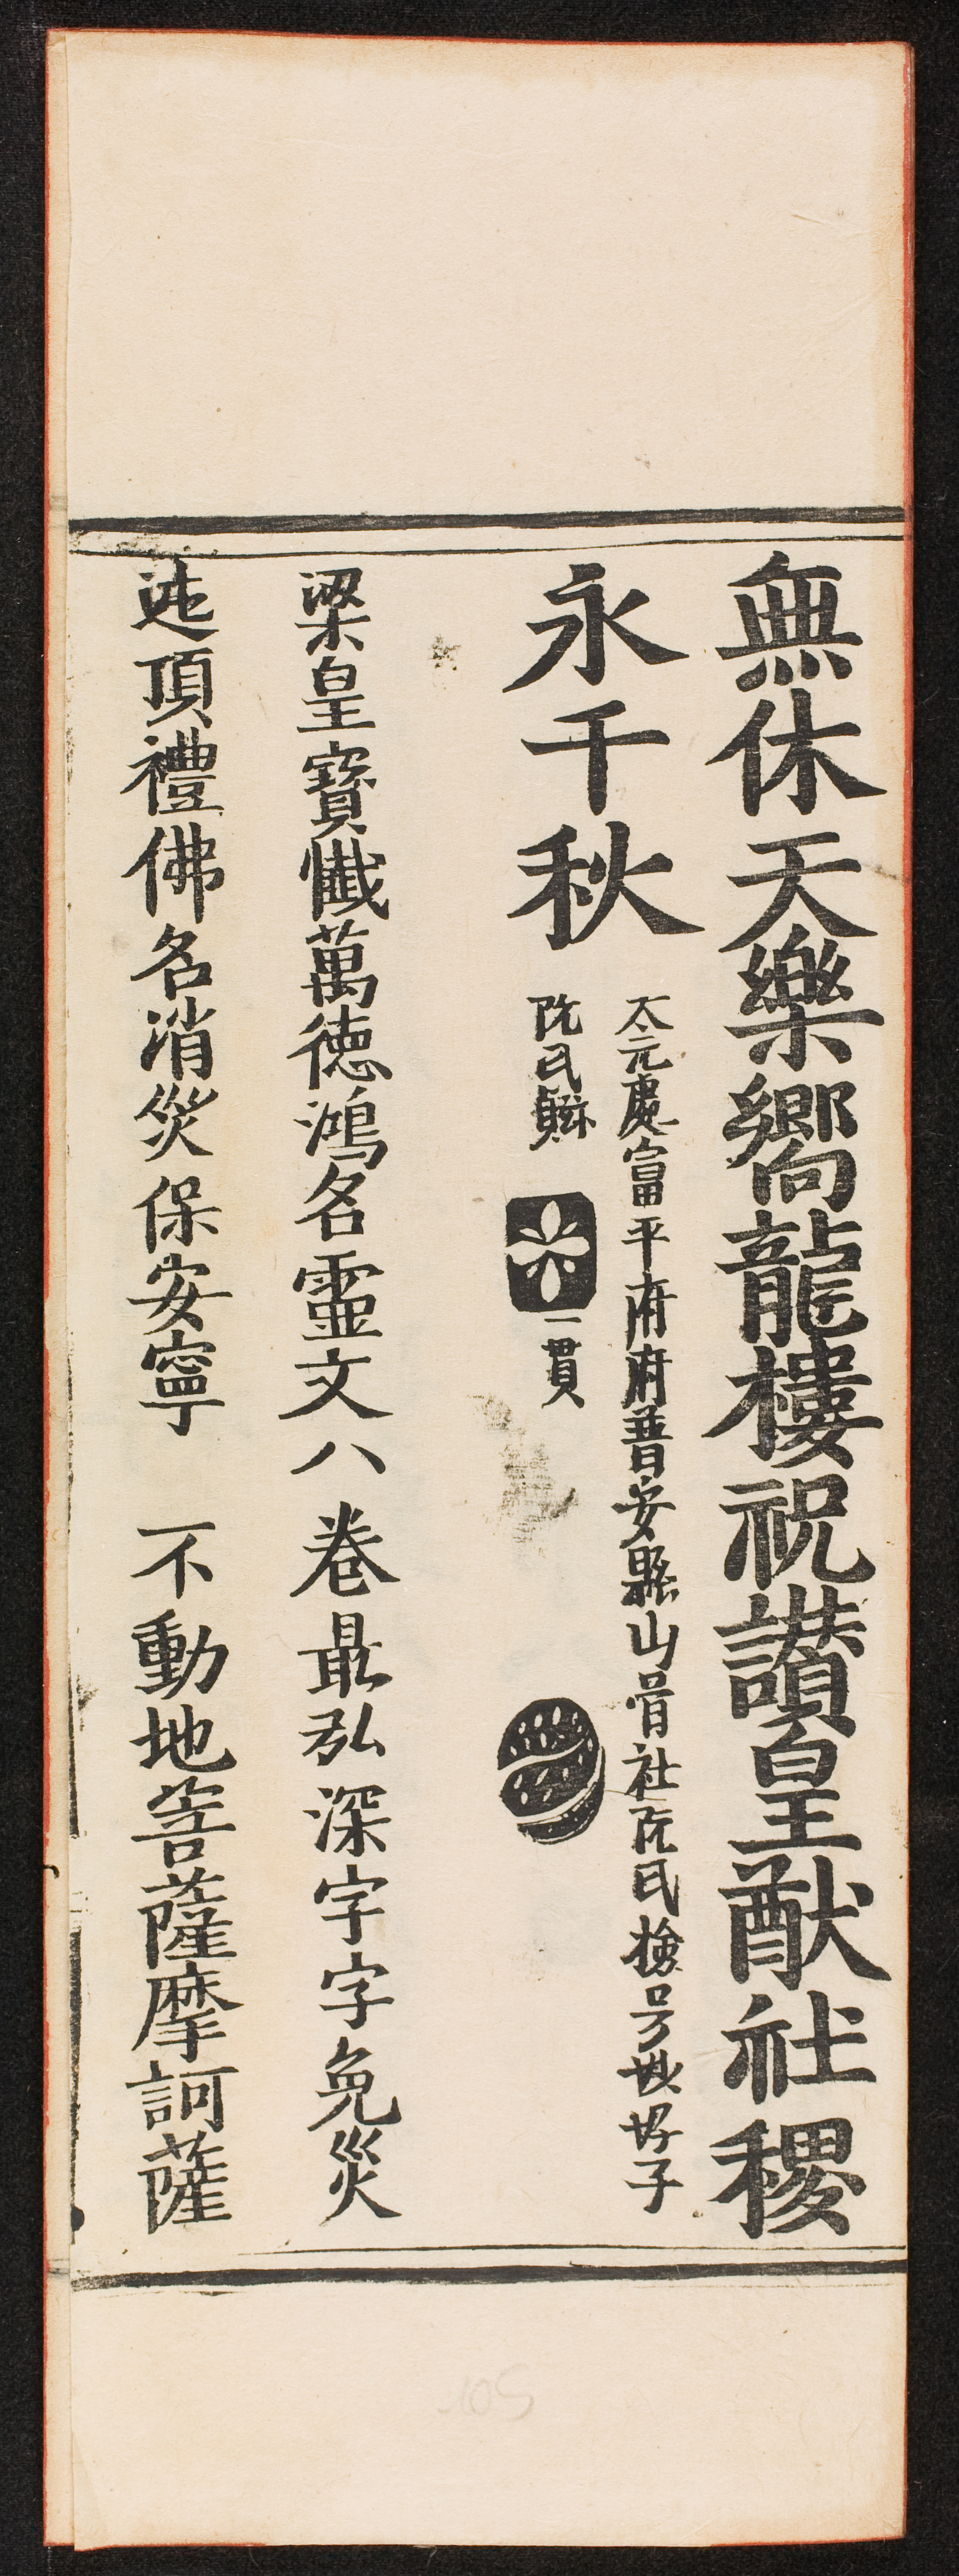 無休天樂嚮龍樓祝讃皇猷社稷
永千秋
太元處富平府府普安縣山骨社阮氏㨿号妙好子
阮氏
一貫
梁皇寶懺萬徳鴻名靈文八卷最弘深字字免災
迍頂禮佛名消災保安寧 不動地菩薩摩訶薩